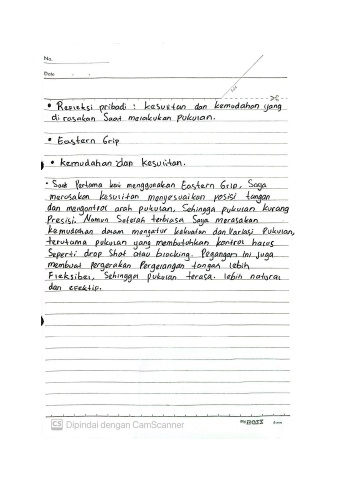 No.
Date
• Refleksi pribadi : kesulitan dan kemudahan yang
di rasakan Saat melakukan pukulan.
• Eastern Grip
• kemudahan dan kesulitan.
• Saat Pertama kali menggunakan Eastern Grip, Saya
merasakan kesulitan menyesuaikan posisi tangan
dan mengontrol arah pukulan, Sehingga pukulan kurang
Presisi. Namun Setelah terbiasa Saya merasakan
kemudahan dalam mengatur kekuatan dan Variasi Pukulan,
terutama pukulan yang membutuhkan kontrol halus
Seperti drop Shot atau blocking. Pegangan ini Juga
membuat pergerakan Pergelangan tangan lebih
Fleksibel, Sehingga pukulan terasa lebih natural
dan efektif.
CS Dipindai dengan CamScanner
BOSS